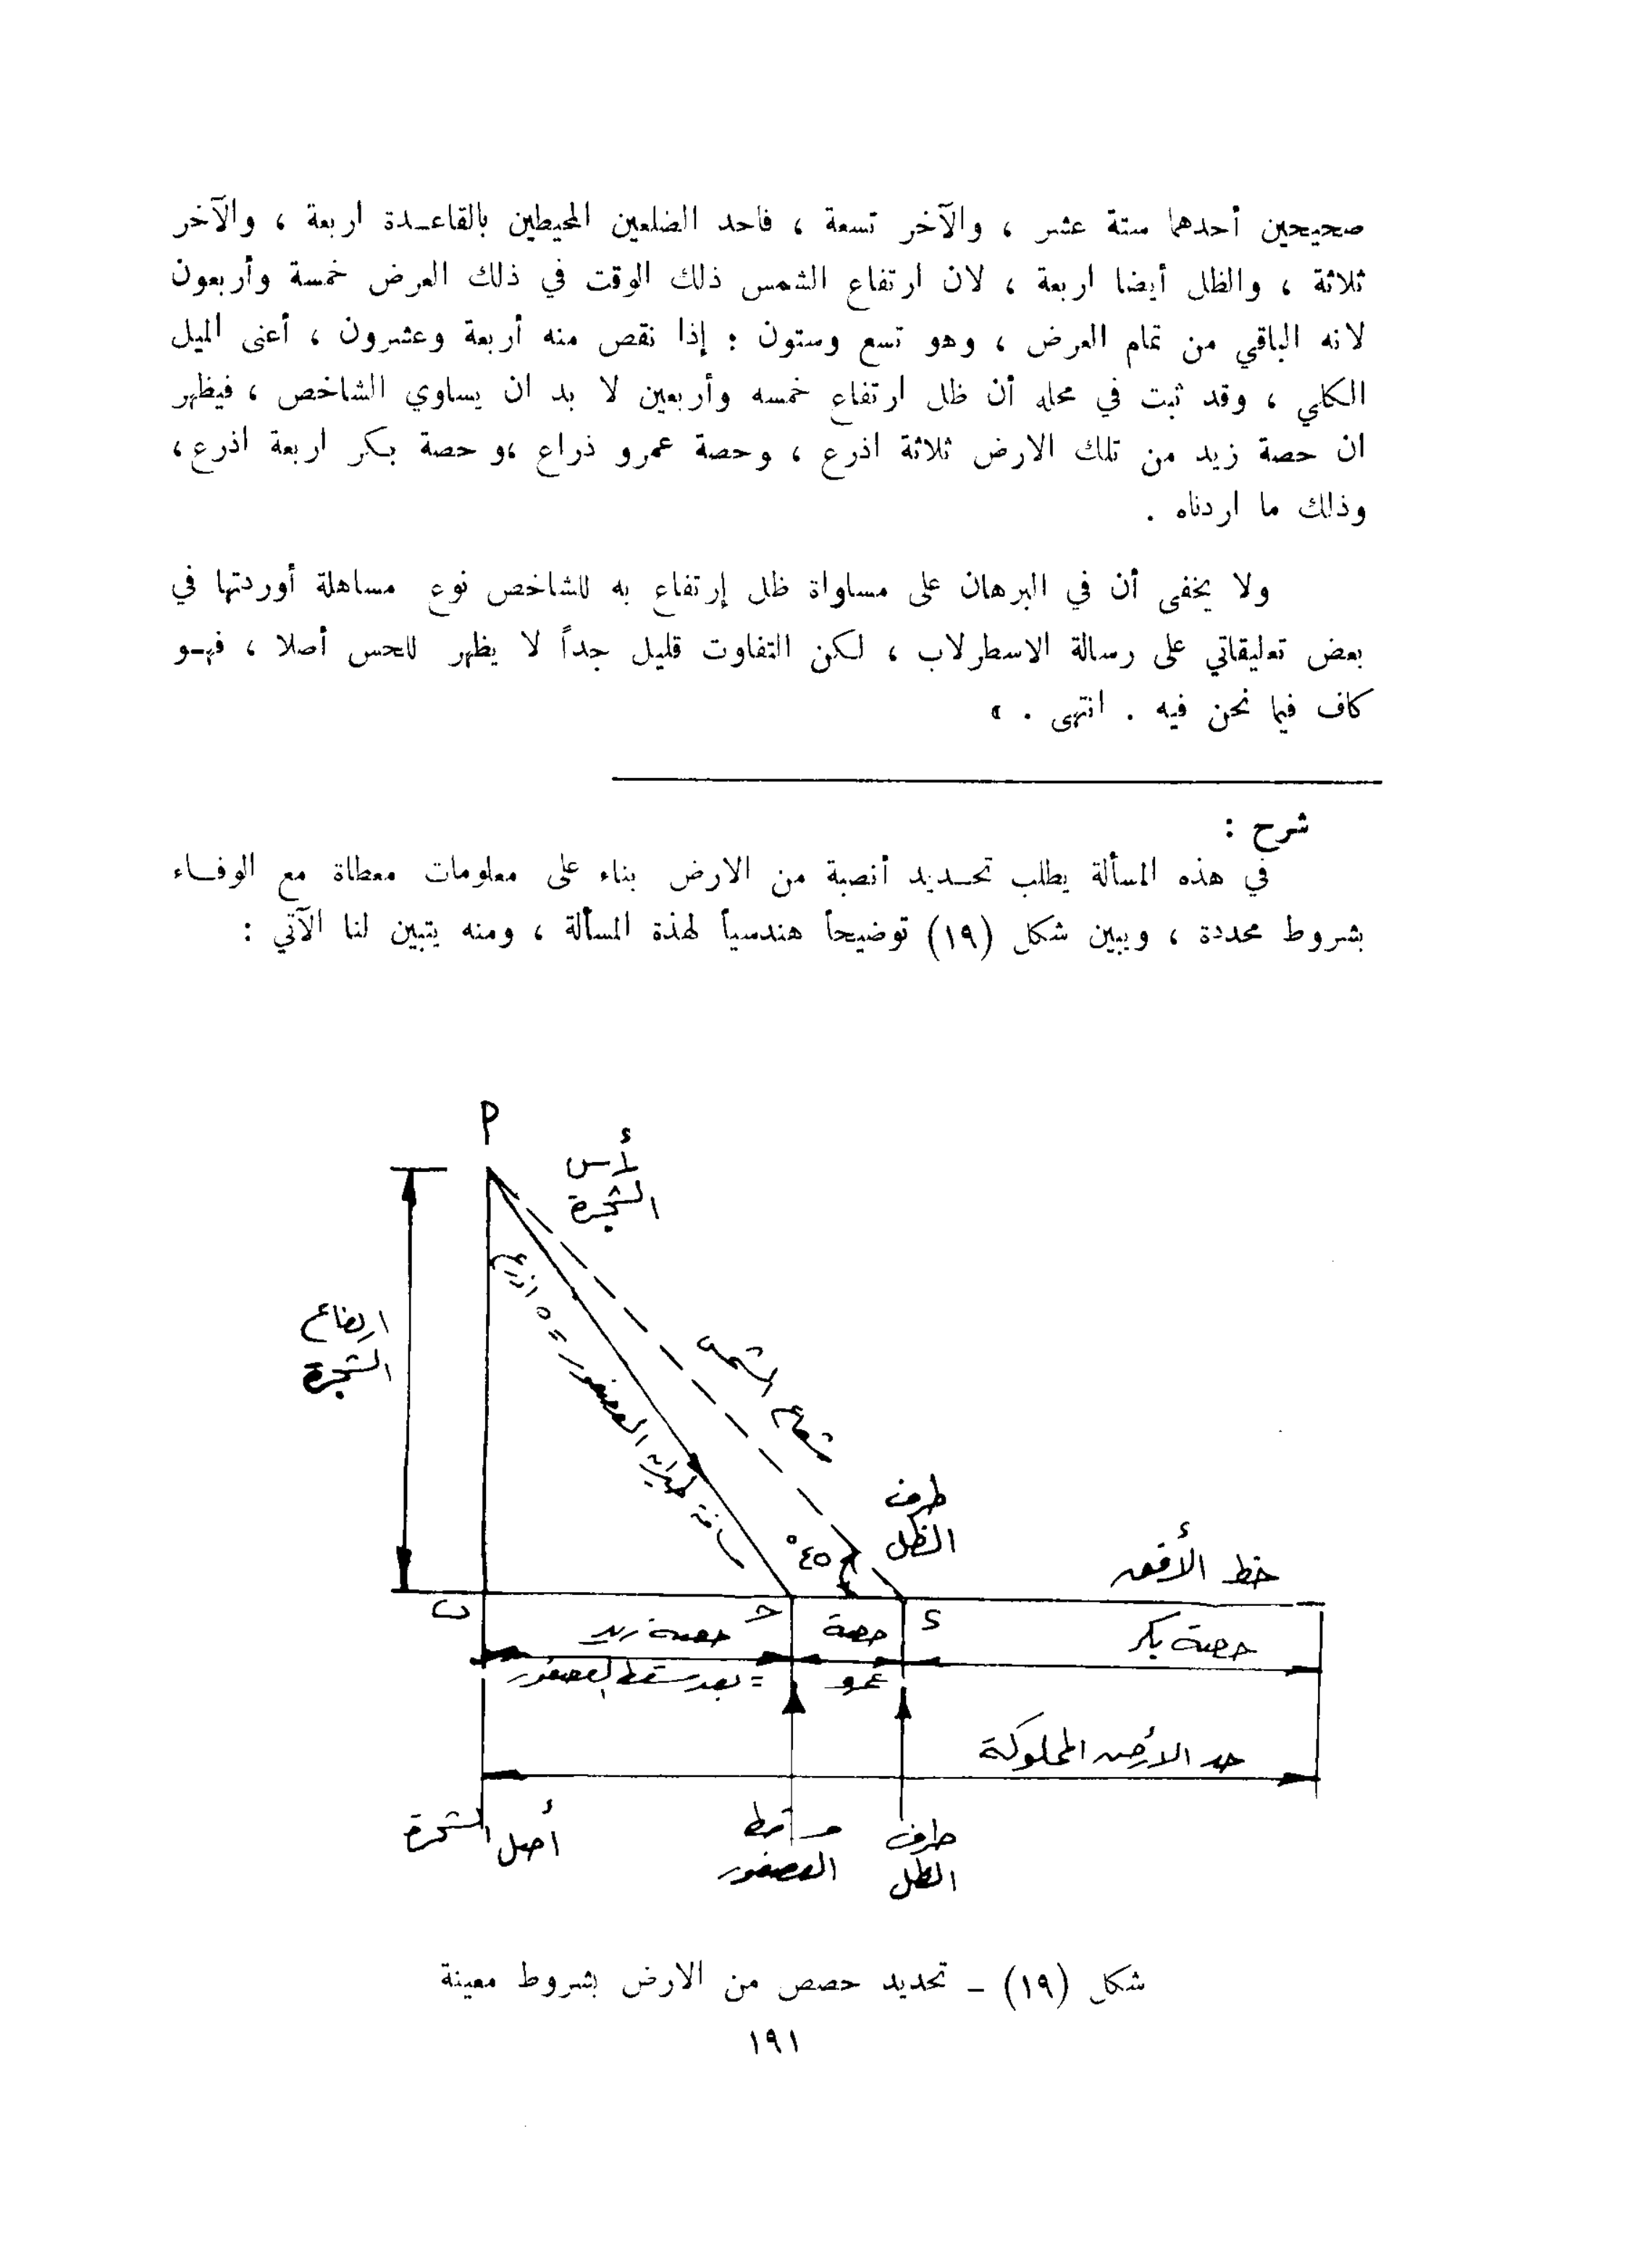 صحيحين أحدهما ستة عشر ، والآخر تسعة ، فاحد الضلعين المحيطين بالقاعـدة اربعة ، والآخر
ثلاثة ، والظل أيضا اربعة ، لان ارتفاع الشمس ذلك الوقت في ذلك العرض خمسة وأربعون
لانه الباقي من تمام العرض ، وهو تسع وستون : إذا نقص منه أربعة وعشرون ، أعنى الميل
الكلي ، وقد ثبت في محله أن ظل ارتفاع خمسه وأربعين لا بد ان يساوي الشاخص ، فيظهر
ان حصة زيد من تلك الارض ثلاثة اذرع ، وحصة عمرو ذراع ،و حصة بكر اربعة اذرع،
وذلك ما اردناه .
ولا يخفى أن في البرهان على مساواة ظل إرتفاع به للشاخص نوع مساهلة أوردتها في
بعض تعليقاتي على رسالة الاسطرلاب ، لكن التفاوت قليل جداً لا يظهر للحس أصلا ، فهـو
كاف فيما نحن فيه . انتهى . »
شرح :
في هذه المسألة يطلب تحـديد أنصبة من الارض بناء على معلومات معطاة مع الوفـاء
بشروط محددة ، ويبين شكل (١٩) توضيحاً هندسياً لهذة المسألة ، ومنه يتبين لنا الآتي :
رأس
الشجرة
ارتفاع
الشجرة
مسافة طيران العصفور = ٥ اذرع
شعاع الشمس
طرف
الظل
٤٥°
خط الأفق
ب
حـ
د
حصة زيد
حصة
حصة بكر
= بعد مسقط العصفور
عمرو
حد الأرض المملوكة
أصل الشجرة
مسقط
العصفور
طرف
الظل
شكل (١٩) ـ تحديد حصص من الارض بشروط معينة
١٩١